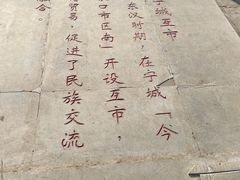 宁城互市
东汉时期，在宁城「今
口市区南」开设互市，
贸易，促进了民族交流
合。